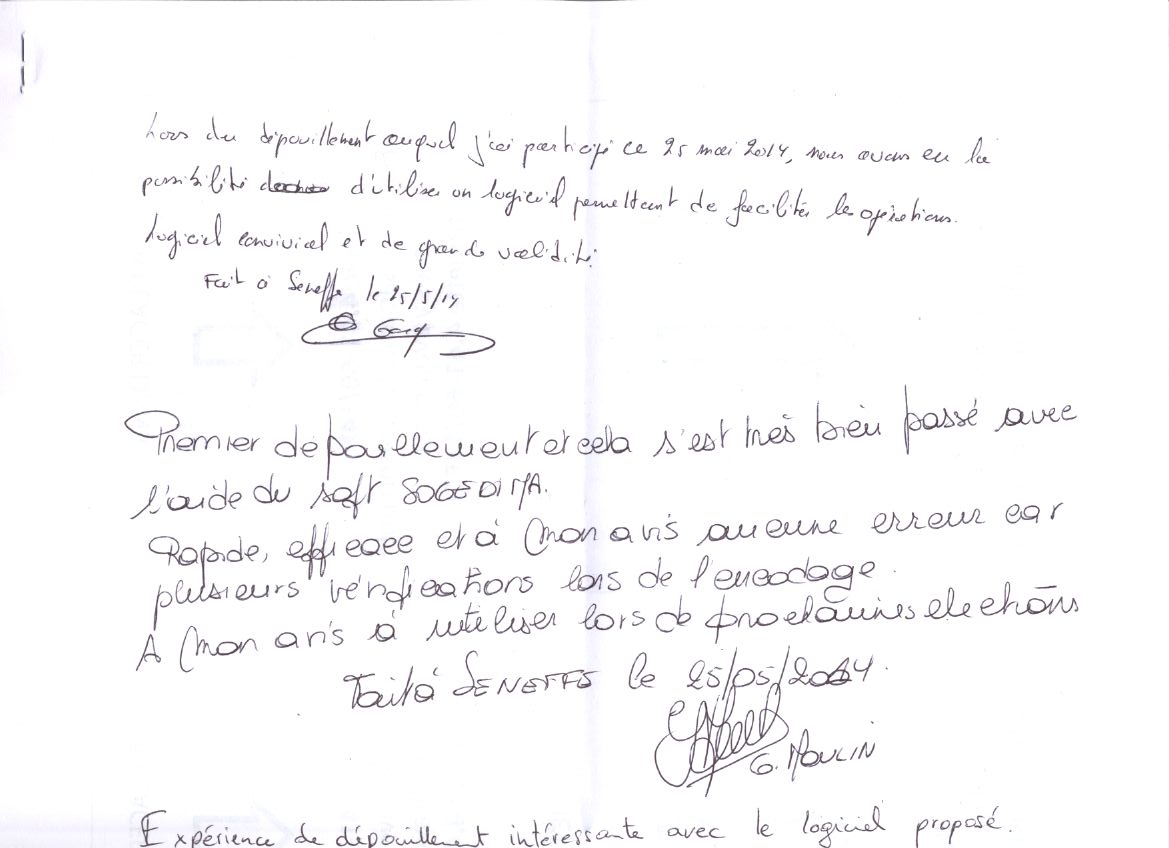 Lors du dépouillement auquel j'ai participé ce 25 mai 2014, nous avons eu la
possibilité d'utiliser un logiciel permettant de faciliter les opérations.
Logiciel convivial et de grande validité.
Fait à Seneffe le 25/5/14
Premier dépouillement et cela s'est très bien passé avec
l'aide du soft SOGEDIMA.
Rapide, efficace et à mon avis aucune erreur car
plusieurs vérifications lors de l'encodage.
A mon avis à utiliser lors de prochaines elections
Fait à SENEFFE le 25/05/2014.
G. MOULIN
Expérience de dépouillement intéressante avec le logiciel proposé.